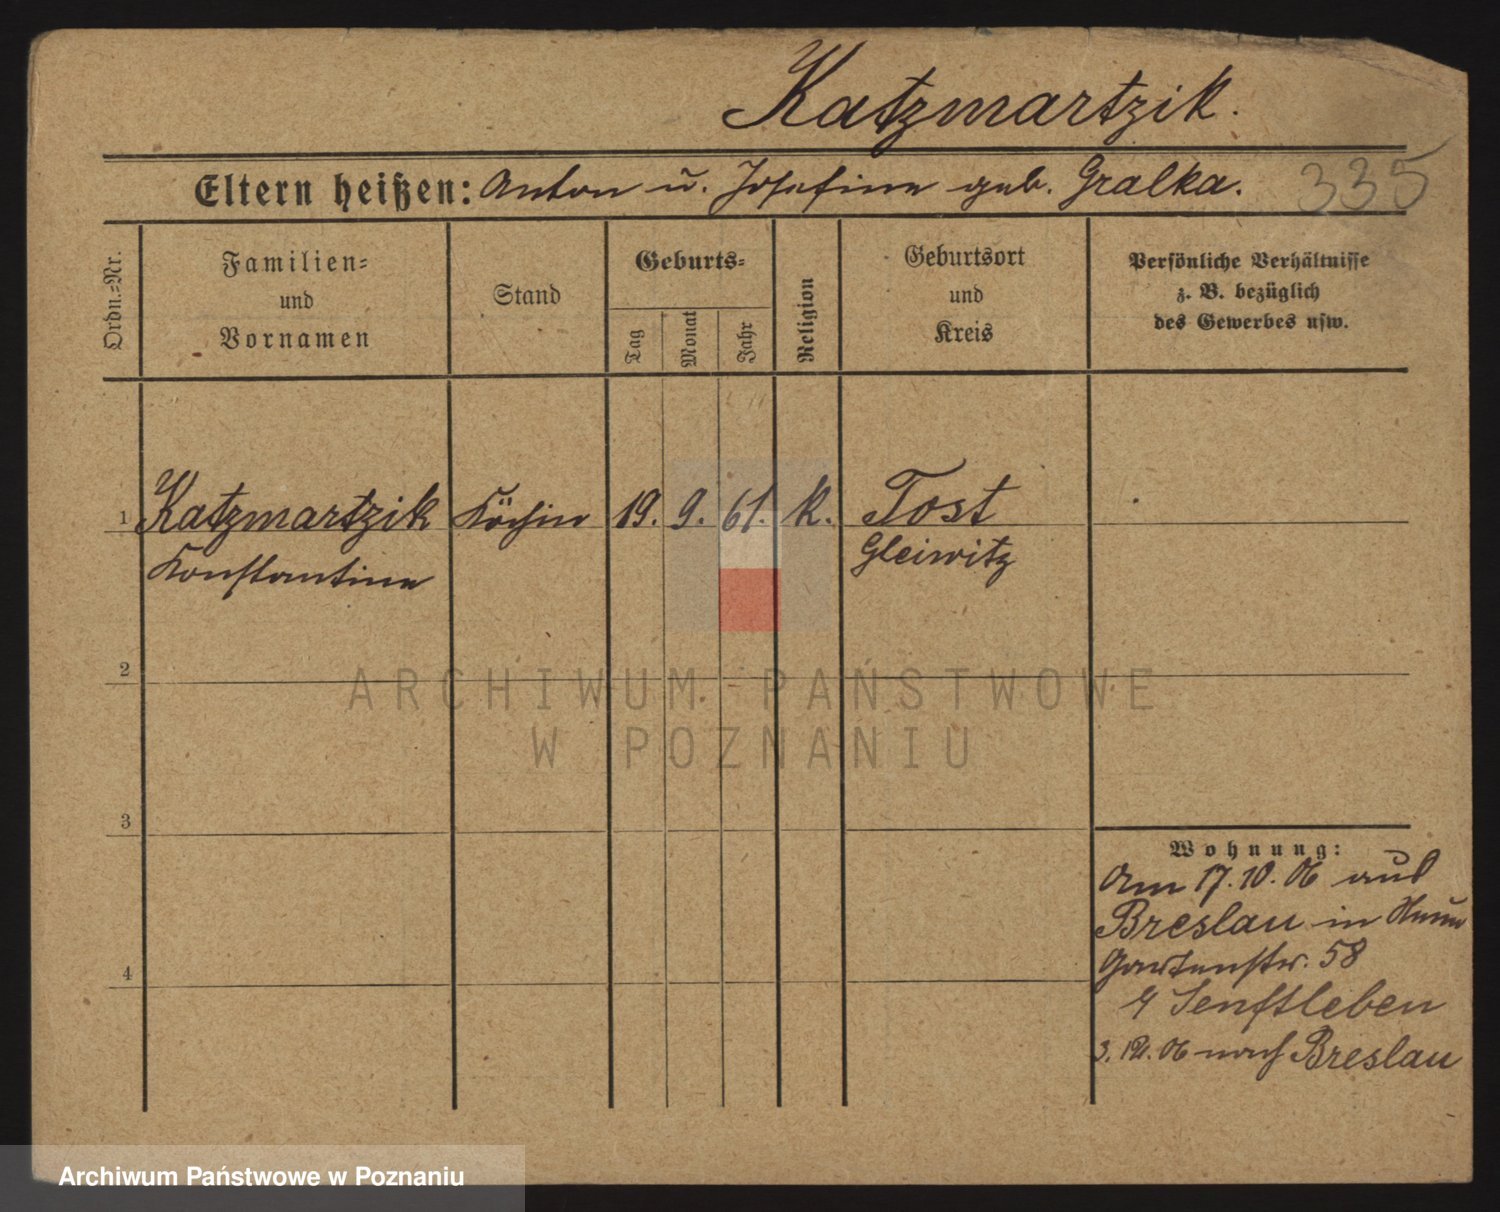 Katzmartzik.
Eltern heißen: Anton u. Josefine geb. Gralka.
335
Ordn.-Nr.
Familien-
und
Vornamen
Stand
Geburts-
Tag
Monat
Jahr
Religion
Geburtsort
und
Kreis
Persönliche Verhältnisse
z. B. bezüglich
des Gewerbes usw.
1 Katzmartzik Köchin 19. 9. 61. k. Tost
Konstantine Gleiwitz
2
ARCHIWUM PAŃSTWOWE
W POZNANIU
3
Wohnung:
Am 17.10.06 aus
Breslau in
Gartenstr. 58
Senftleben
3.12.06 nach Breslau
4
Archiwum Państwowe w Poznaniu